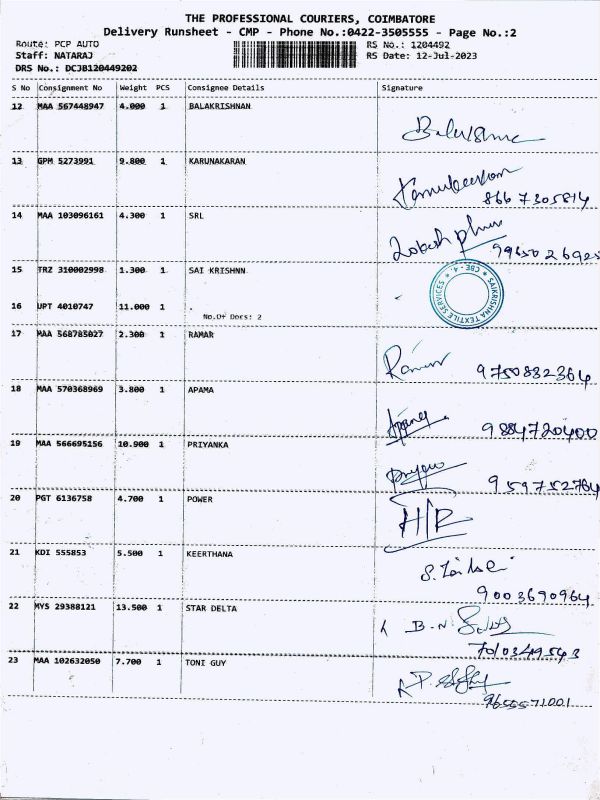 THE PROFESSIONAL COURIERS, COIMBATORE
Delivery Runsheet - CMP - Phone No.:0422-3505555 - Page No.:2
Route: PCP AUTO RS No.: 1204492
Staff: NATARAJ RS Date: 12-Jul-2023
DRS No.: DCJB120449202
S No Consignment No Weight PCS Consignee Details Signature
12 MAA 567448947 4.000 1 BALAKRISHNAN
13 GPM 5273991 9.800 1 KARUNAKARAN
8667305814
14 MAA 103096161 4.300 1 SRL
9965026925
15 TRZ 310002998 1.300 1 SAI KRISHNN
SAIKRISHNA TEXTILE SERVICES ★ CBE - 4. ★
16 UPT 4010747 11.000 1
No.Of Docs: 2
17 MAA 568785027 2.300 1 RAMAR
9750882364
18 MAA 570368969 3.800 1 APAMA
9884720400
19 MAA 566695156 10.900 1 PRIYANKA
9597752764
20 PGT 6136758 4.700 1 POWER
H/R
21 KDI 555853 5.500 1 KEERTHANA
9003690964
22 MYS 29388121 13.500 1 STAR DELTA
B.N
7010349543
23 MAA 102632050 7.700 1 TONI GUY
9655571001